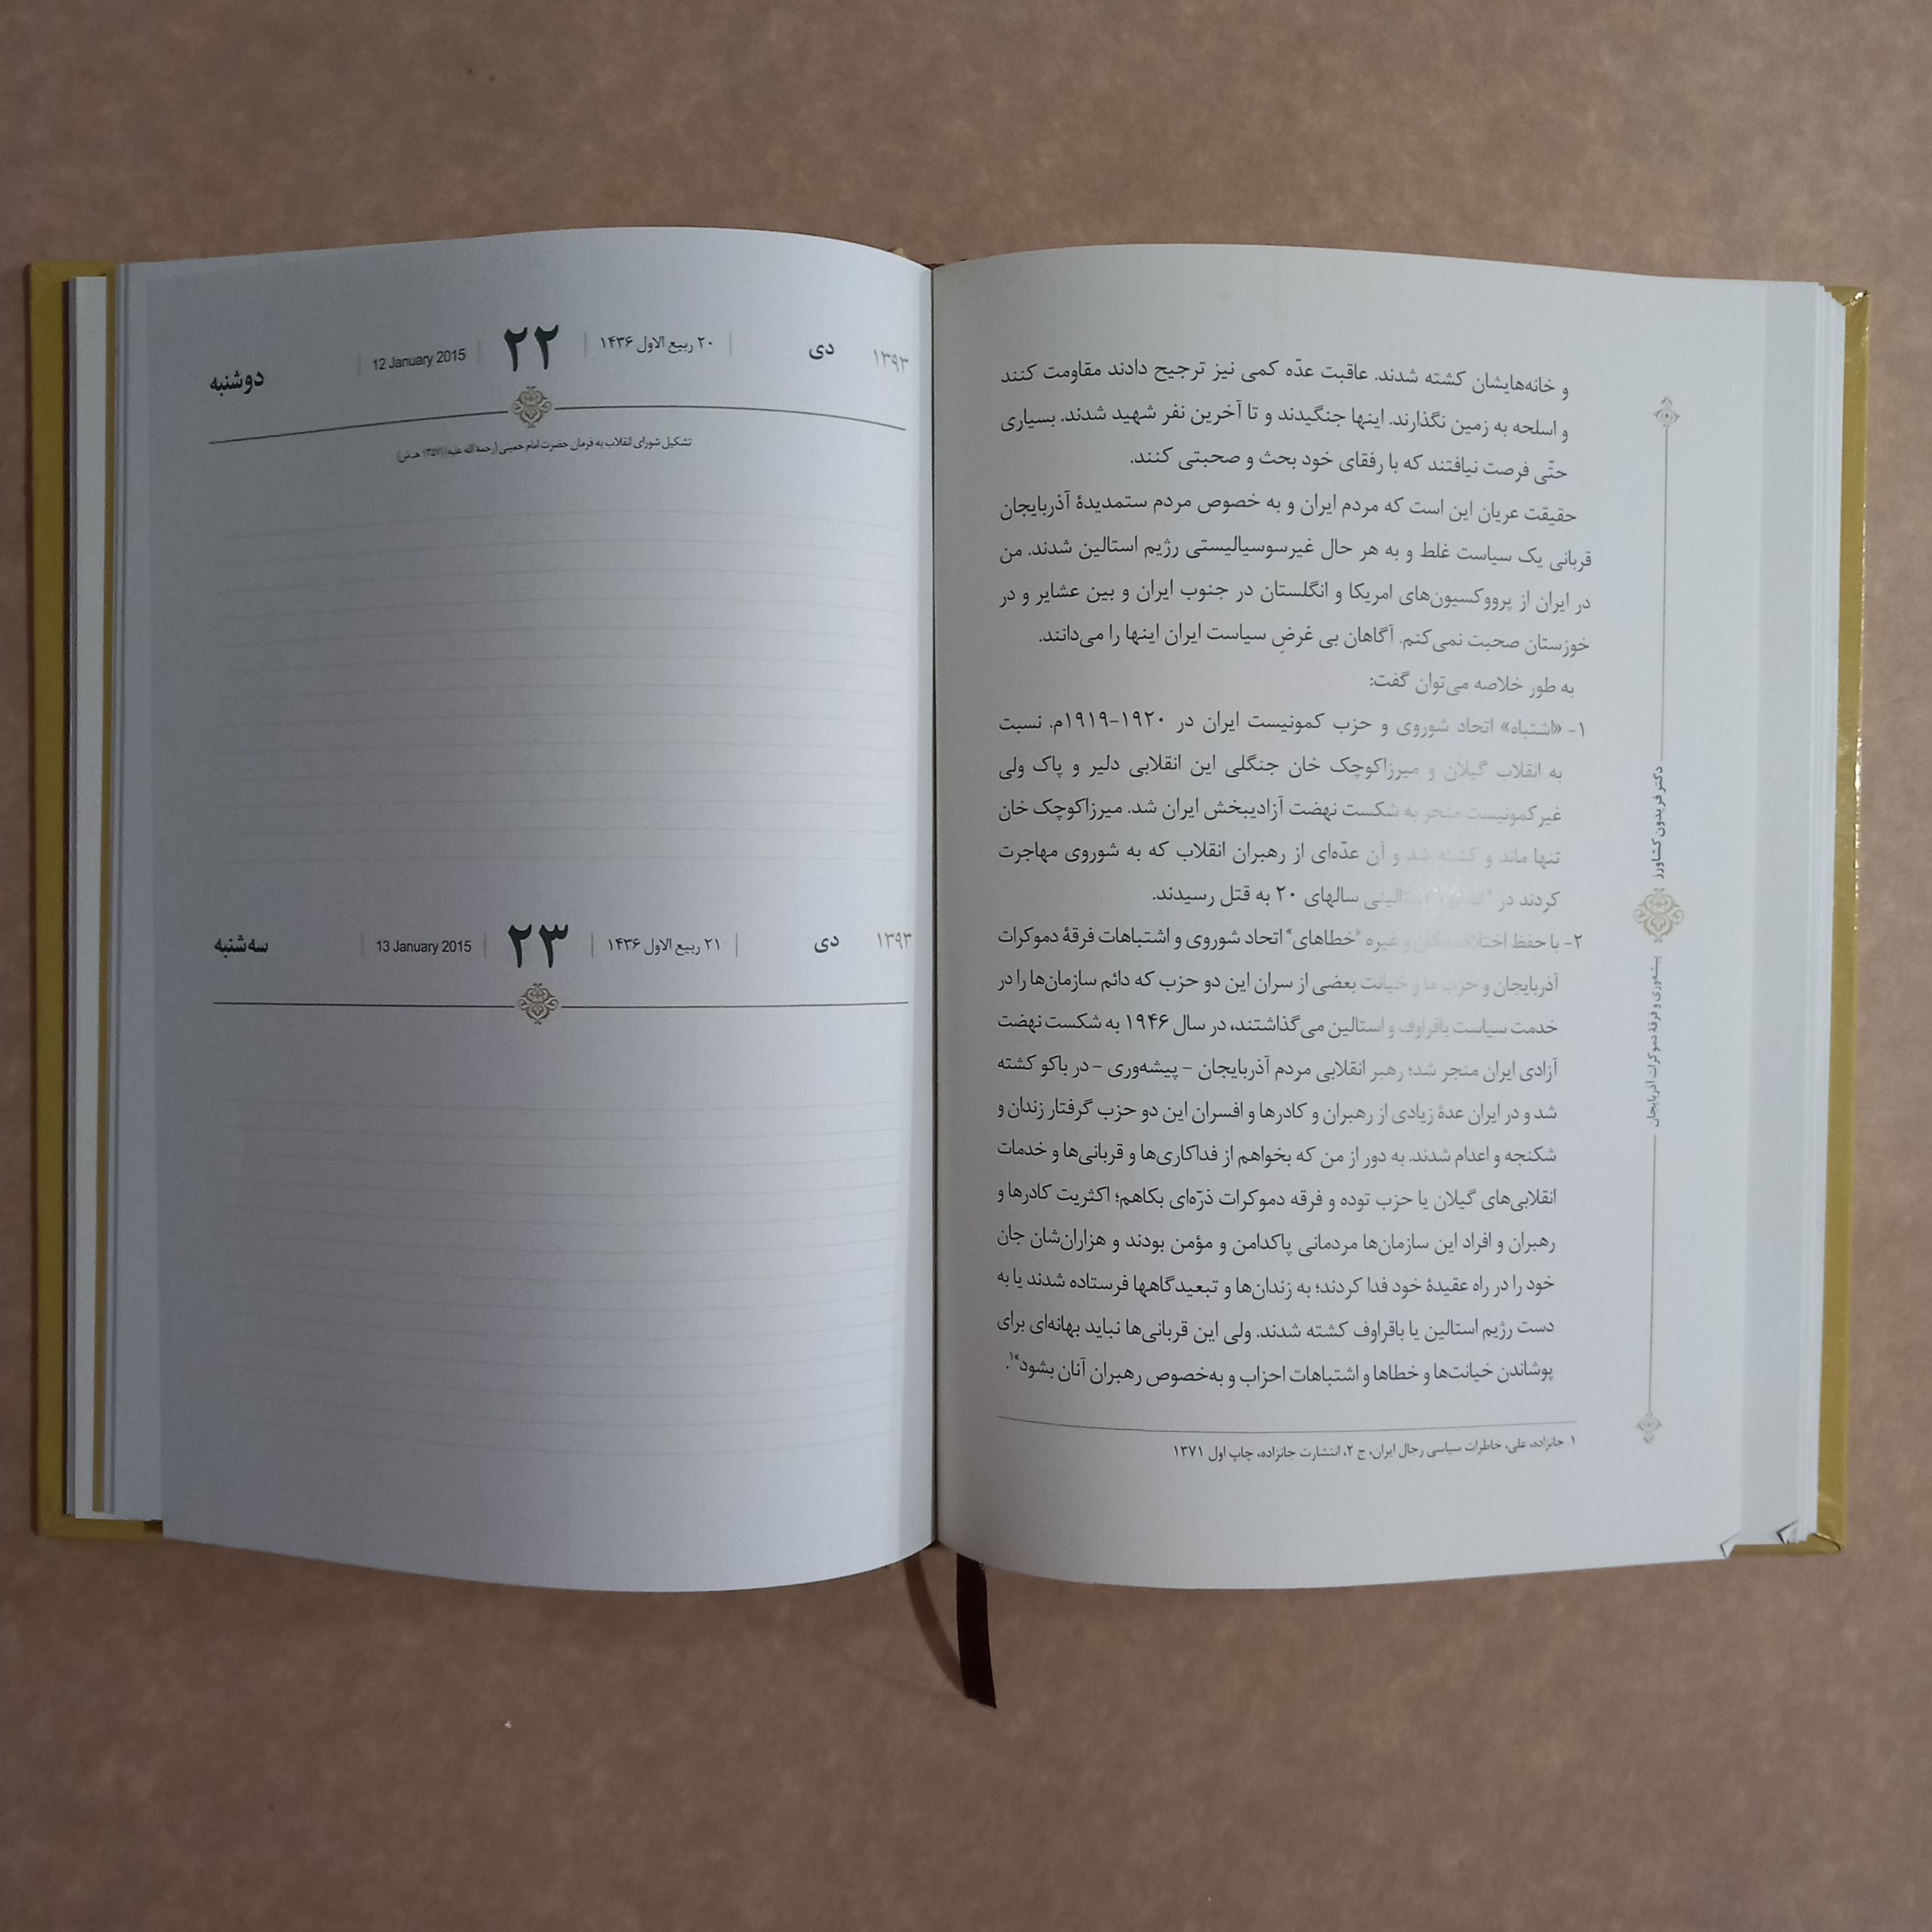 و خانه‌هایشان کشته شدند. عاقبت عدّه کمی نیز ترجیح دادند مقاومت کنند
و اسلحه به زمین نگذارند. اینها جنگیدند و تا آخرین نفر شهید شدند. بسیاری
حتّی فرصت نیافتند که با رفقای خود بحث و صحبتی کنند.
حقیقت عریان این است که مردم ایران و به خصوص مردم ستمدیدهٔ آذربایجان
قربانی یک سیاست غلط و به هر حال غیرسوسیالیستی رژیم استالین شدند. من
در ایران از پرووکسیون‌های امریکا و انگلستان در جنوب ایران و بین عشایر و در
خوزستان صحبت نمی‌کنم. آگاهان بی غرضِ سیاست ایران اینها را می‌دانند.
به طور خلاصه می‌توان گفت:
۱- «اشتباه» اتحاد شوروی و حزب کمونیست ایران در ۱۹۲۰-۱۹۱۹م. نسبت
به انقلاب گیلان و میرزاکوچک خان جنگلی این انقلابی دلیر و پاک ولی
غیرکمونیست منجر به شکست نهضت آزادیبخش ایران شد. میرزاکوچک خان
تنها ماند و کشته شد و آن عدّه‌ای از رهبران انقلاب که به شوروی مهاجرت
کردند در سالهای ۲۰ به قتل رسیدند.
۲- با حفظ اختلاف مکان و غیره "خطاهای" اتحاد شوروی و اشتباهات فرقهٔ دموکرات
آذربایجان و حزب ما و خیانت بعضی از سران این دو حزب که دائم سازمان‌ها را در
خدمت سیاست باقراوف و استالین می‌گذاشتند، در سال ۱۹۴۶ به شکست نهضت
آزادی ایران منجر شد؛ رهبر انقلابی مردم آذربایجان - پیشه‌وری - در باکو کشته
شد و در ایران عدهٔ زیادی از رهبران و کادرها و افسران این دو حزب گرفتار زندان و
شکنجه و اعدام شدند. به دور از من که بخواهم از فداکاری‌ها و قربانی‌ها و خدمات
انقلابی‌های گیلان یا حزب توده و فرقه دموکرات ذرّه‌ای بکاهم؛ اکثریت کادرها و
رهبران و افراد این سازمان‌ها مردمانی پاکدامن و مؤمن بودند و هزاران‌شان جان
خود را در راه عقیدهٔ خود فدا کردند؛ به زندان‌ها و تبعیدگاهها فرستاده شدند یا به
دست رژیم استالین یا باقراوف کشته شدند. ولی این قربانی‌ها نباید بهانه‌ای برای
پوشاندن خیانت‌ها و خطاها و اشتباهات احزاب و به‌خصوص رهبران آنان بشود"۱.
۱. جانزاده، علی، خاطرات سیاسی رجال ایران، ج ۲، انتشارت جانزاده، چاپ اول ۱۳۷۱
دکتر فریدون کشاورز
پیشه‌وری و فرقهٔ دموکرات آذربایجان
۱۳۹۳ دی | ۲۰ ربیع الاول ۱۴۳۶ | ۲۲ | 12 January 2015 | دوشنبه
تشکیل شورای انقلاب به فرمان حضرت امام خمینی (رحمة الله علیه) (۱۳۵۷ هـ.ش)
۱۳۹۳ دی | ۲۱ ربیع الاول ۱۴۳۶ | ۲۳ | 13 January 2015 | سه‌شنبه